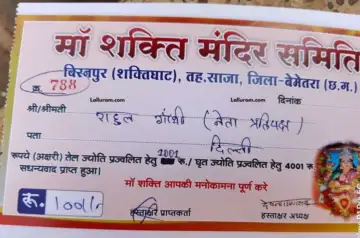 माँ शक्ति मंदिर समिति
बिरनपुर (शक्तिघाट), तह.साजा, जिला-बेमेतरा (छ.ग.)
Lalluram.com Lalluram.com Lalluram.com
क्र. 788 दिनांक
श्री/श्रीमती राहुल गाँधी (नेता प्रतिपक्ष)
पता दिल्ली
रूपये (अक्षरी) तेल ज्योति प्रज्वलित हेतु 2001 रू./ घृत ज्योति प्रज्वलित हेतु 4001 रू.
सधन्यवाद प्राप्त हुआ।
माँ शक्ति आपकी मनोकामना पूर्ण करे
रू.
हस्ताक्षर प्राप्तकर्ता हस्ताक्षर अध्यक्ष